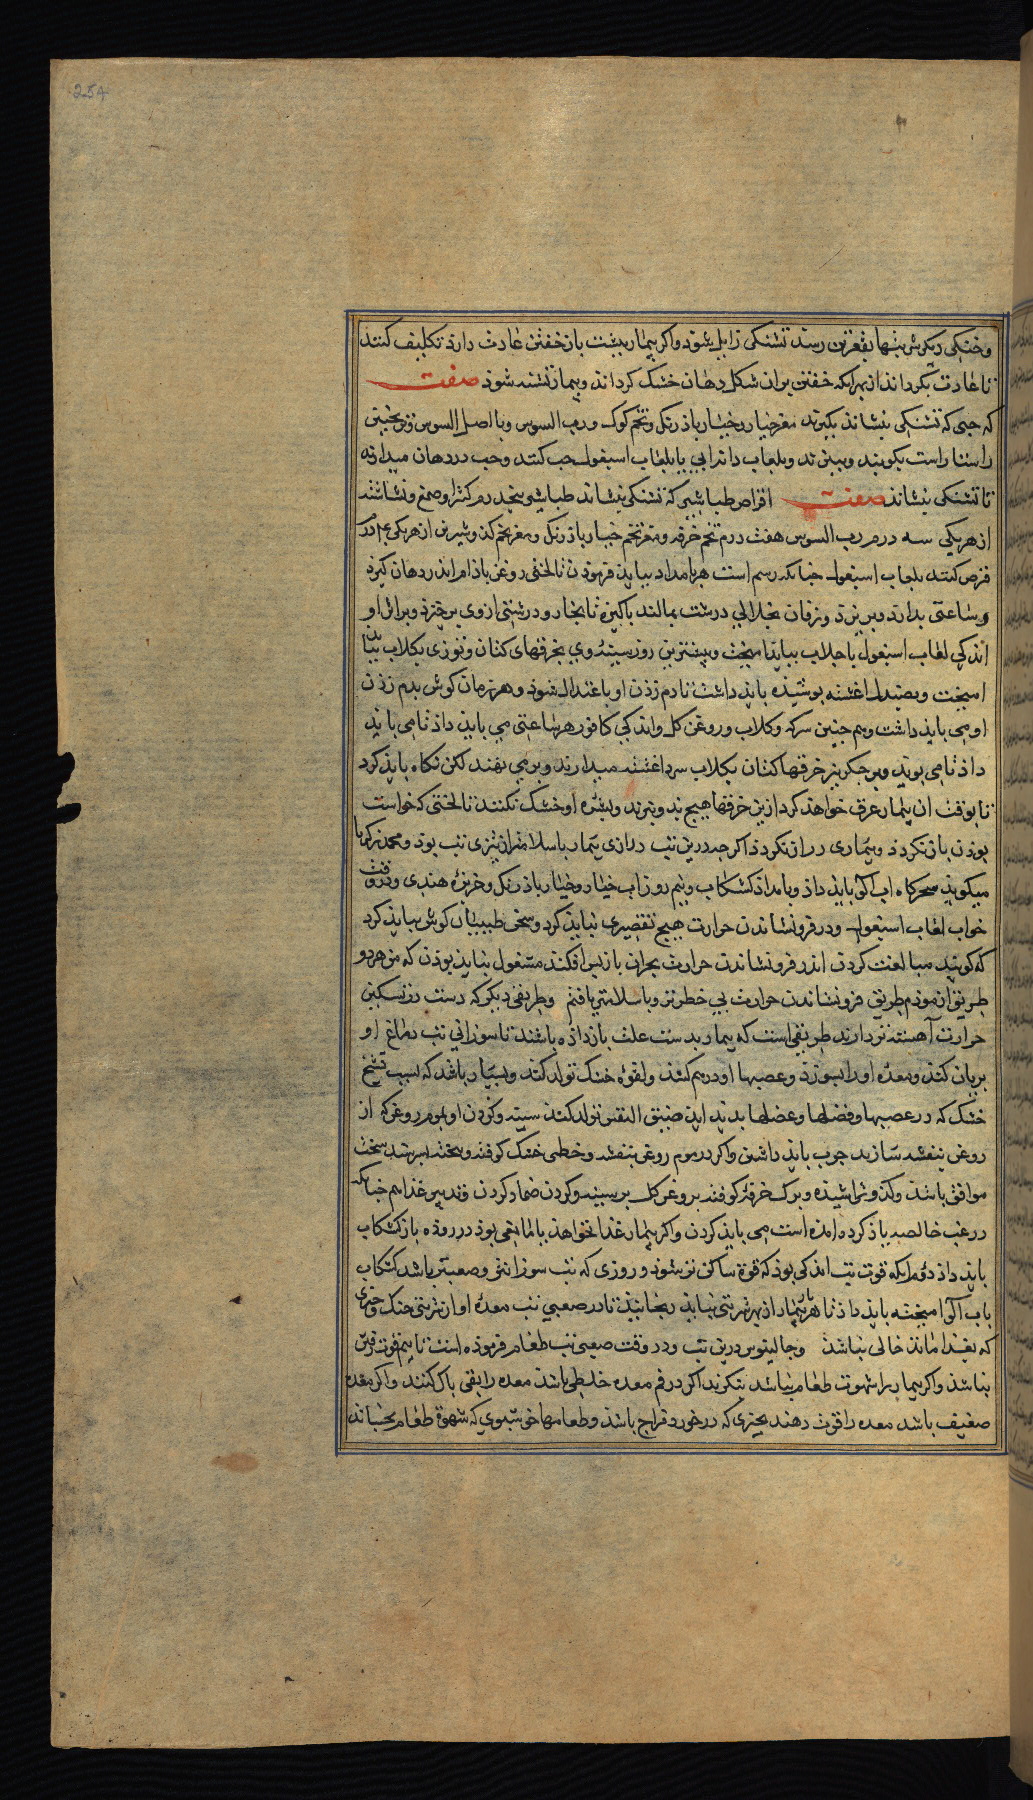 254
وخنکی دیکرش بثنها بقعرتن رسذ تشنکی زایل شوذ واکر بیمار بپشت باز خفتن عادت دارذ تکلیف کنند
تا عادت بکرداند از بهر انکه خفتن بران شکل دهان خشک کرداند وبیمار تشنه شود صفت
که حبی که تشنکی بنشاند بکیرند مغز خیار وخیار باذرنک وتخم کوک ورب السوس وبا اصل السوس وترنجبین
راستا راست بکوبند وببیزند وبلعاب دانه ابی یا بلعاب اسبغول حب کنند وحب در دهان میدارند
تا تشنکی بنشاند صفت اقراص طباشیر که تشنکی بنشاند طباشیر پنجدرم کثیرا وصمغ ونشاشته
از هریکی سه درم رب السوس هفت درم تخم خرفه ومغز تخم خیار باذرنک ومغز تخم کدو شیرین از هریکی
قرص کنند بلعاب اسبغول چنانکه رسم است هر بامداد بباید فرمودن تا لختی روغن باذام اندر دهان کیرد
وساعتی بدارد وبریزد وزفان بخلالی درشت بمالند پاکیزه تا بخار ودرشتی ازوی برخیزد وبراثر او
اندکی لعاب اسبغول با جلاب بباید امیخت وبیشترین روز سینه وی بخرقهای کتان وتوزی بکلاب
امیخت وصندل اغشته پوشیده باید داشت تا دم زذن او باعتدال شود وهر زمان کوش بدم زذن
او می باید داشت وهم چنین سرکه وکلاب وروغن کل واندکی کافور هر ساعتی می باید داذ تا می بوید
داذ تا می بوید وبر جکر نیز خرقها کتان بکلاب سرد اغشته میدارند وبر می نهند لکن نکاه باید کرد
تا بوقت ان بیمار عرق خواهذ کرد ازین خرقها هیچ نبد ونبرند وبشره او خشک نکنند تا لختی که خواست
بوذن باز نکردذ وبیماری دراز نکردذ اکر چه درین تب درازی بیمار باسلامتر از تیزی تب بود ومحمد زکریا
میکوید سحرکاه اب الو باید داذ وبامداد کشکاب ونیم روز اب خیار وخیار باذرنک وخربزه هندی ودر وقت
خواب لعاب اسبغول ودر فرو نشاندن حرارت هیچ تقصیری نباید کرد وسخن طبیبان کوش نباید کرد
که کویند مبالغت کردن اندر فرو نشاندن حرارت بحران باز پس افکند مشغول نباید بوذن که من هر دو
طریق ازموذم طریق فرو نشاندن حرارت بی خطرتر وباسلامتر یافتم وطریقی دیکر که دست در تسکین
حرارت آهسته تر دارند طریقی است که بیمار بدست علت باز داذه باشند تا سوزانی تب دماغ او
بریان کند ومعده او را بسوزد وعصبها او درهم کشد ولقوه خشک تولد کند وبسیار باشد که بسبب تشنج
خشک که در عصبها وفضلها وعضلها بدید اید ضیق النفس تولد کند سینه وکردن او بموم روغن که از
روغن بنفشه سازند چرب باید داشت واکر درموم روغن بنفشه وخطمی خشک کوفته وبیخته بسرشند سخت
موافق باشد وکذو تراشیده وبرک خرفه کوفته بروغن کل بر سینه وکردن ضماد کردن وتدبیر غذا هم چنانکه
در غب خالصه یاد کرده امذه است می باید کردن واکر بیمار غذا نخواهذ یا مانعی بوذ در روذه باز کشکاب
باید داذ دوم انکه قوت تب اندکی بوذ که قوة ساکن تر شود وروزی که تب سوزانتر وصعبتر باشد کشکاب
باب الو امیخته باید داذ تا هر بیمار از بهر تربتی نیاید بخانیذ تا در صعبی تب معده او از شربتی خنک وچیزی
که بغذا ماند خالی نباشذ وجالینوس درین تب ودر وقت صعبی تب طعام فرموذه است تا بیم قوت رفتن
نباشد واکر بیمار را شهوت طعام نباشد بنکرند اکر در فم معده خلطی باشد معده را بقی پاک کنند واکر معده
ضعیف باشد معده را قوت دهند بچیزی که در خورد مزاج باشد وطعامها خوشبوی که شهوة طعام بجنباند